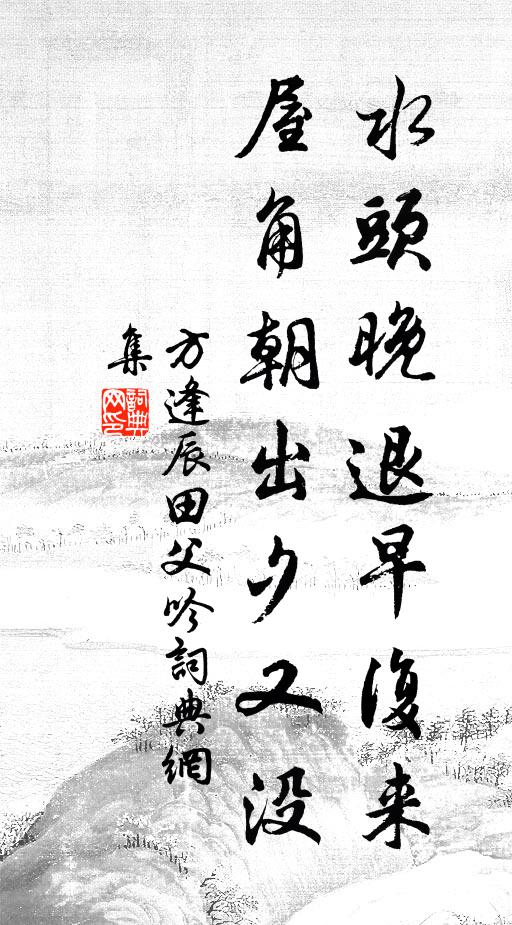 水頭晚退早復来
屋角朝出夕又没
方逢辰田父吟詞典網
集
詞典網印